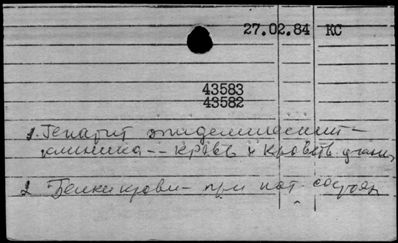 27.02.84 КС
43583
43582
1. Гепатит эпидемический –
клиника -- кровь и кровотв.
2 Белки крови – при пат